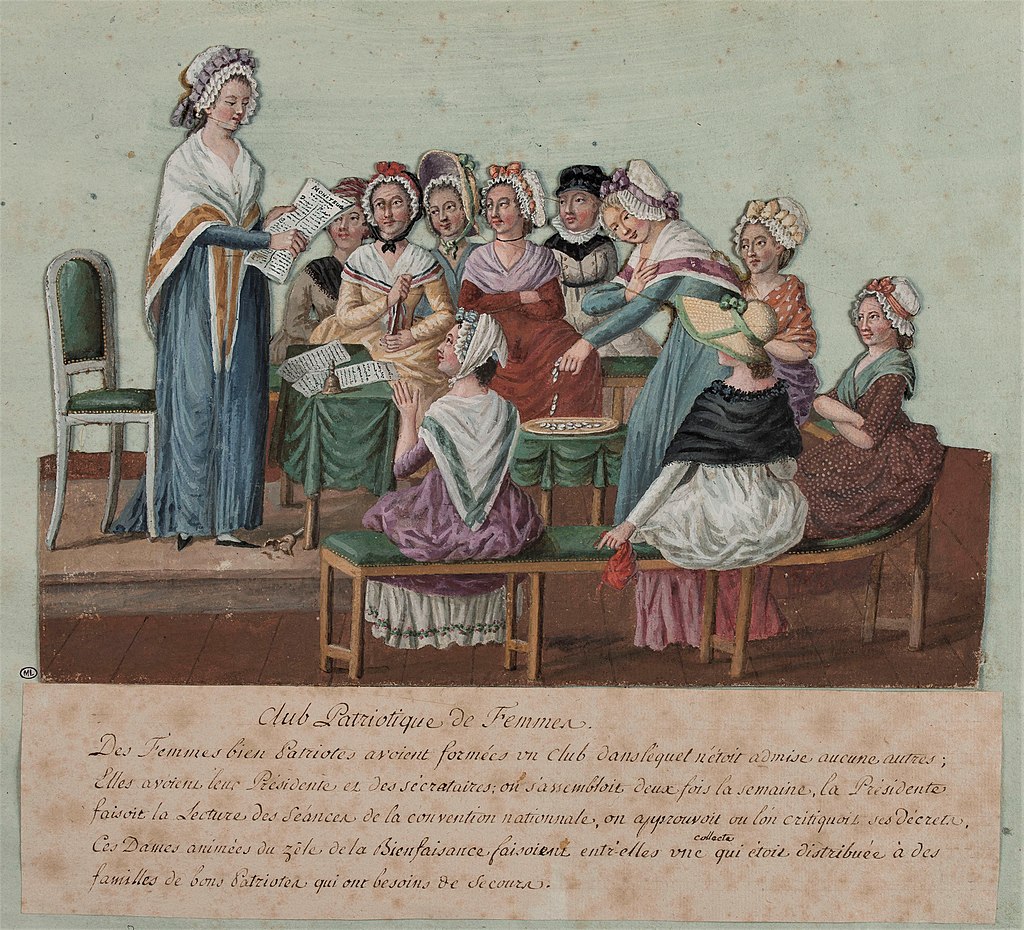 MONITE
Club Patriotique de Femmes.
Des Femmes bien Patriotes avoient formées un Club dans lequel n'étoit admise aucune autres;
Elles avoient leur Présidente et des sécrataires; on s'assembloit deux fois la semaine, la Présidente
faisoit la Lecture des Séances de la convention nationnale, on approuvoit ou l'on critiquoit ses décrets.
collecte
Ces Dames animées du zêle de la Bienfaisance faisoient entr'elles une qui étoit distribuée à des
familles de bons Patriotes qui ont besoins de Secours.
ML